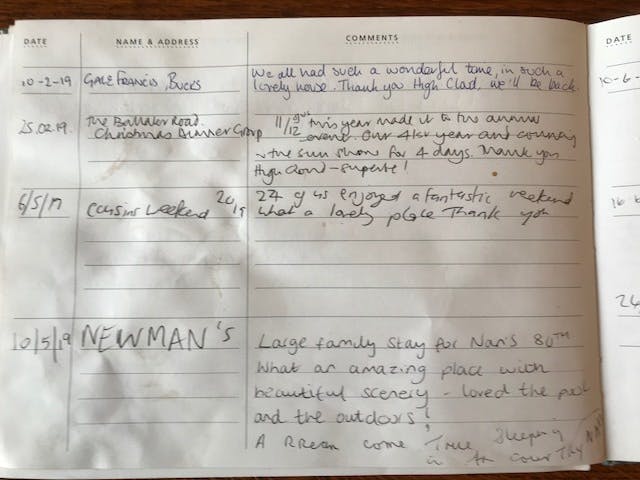 DATE NAME & ADDRESS COMMENTS DATE
10-2-19 GALE FRANCIS, BUCKS We all had such a wonderful time, in such a
lovely house. Thank you High Clad, we'll be back.
25.02.19. The Ballater Road 11/12 of us this year made it to the annual
Christmas Dinner Group event. Our 41st year and country
& the sun shone for 4 days. Thank you
High - superb!
6/5/19 Cousins weekend 2019 24 of us enjoyed a fantastic weekend
what a lovely place Thank you
10/5/19 NEWMAN's Large family stay for Nan's 80TH
What an amazing place with
beautiful scenery - loved the pool
and the outdoors!
A Dream come True Sleeping
in the country NAN
10-6
16
24